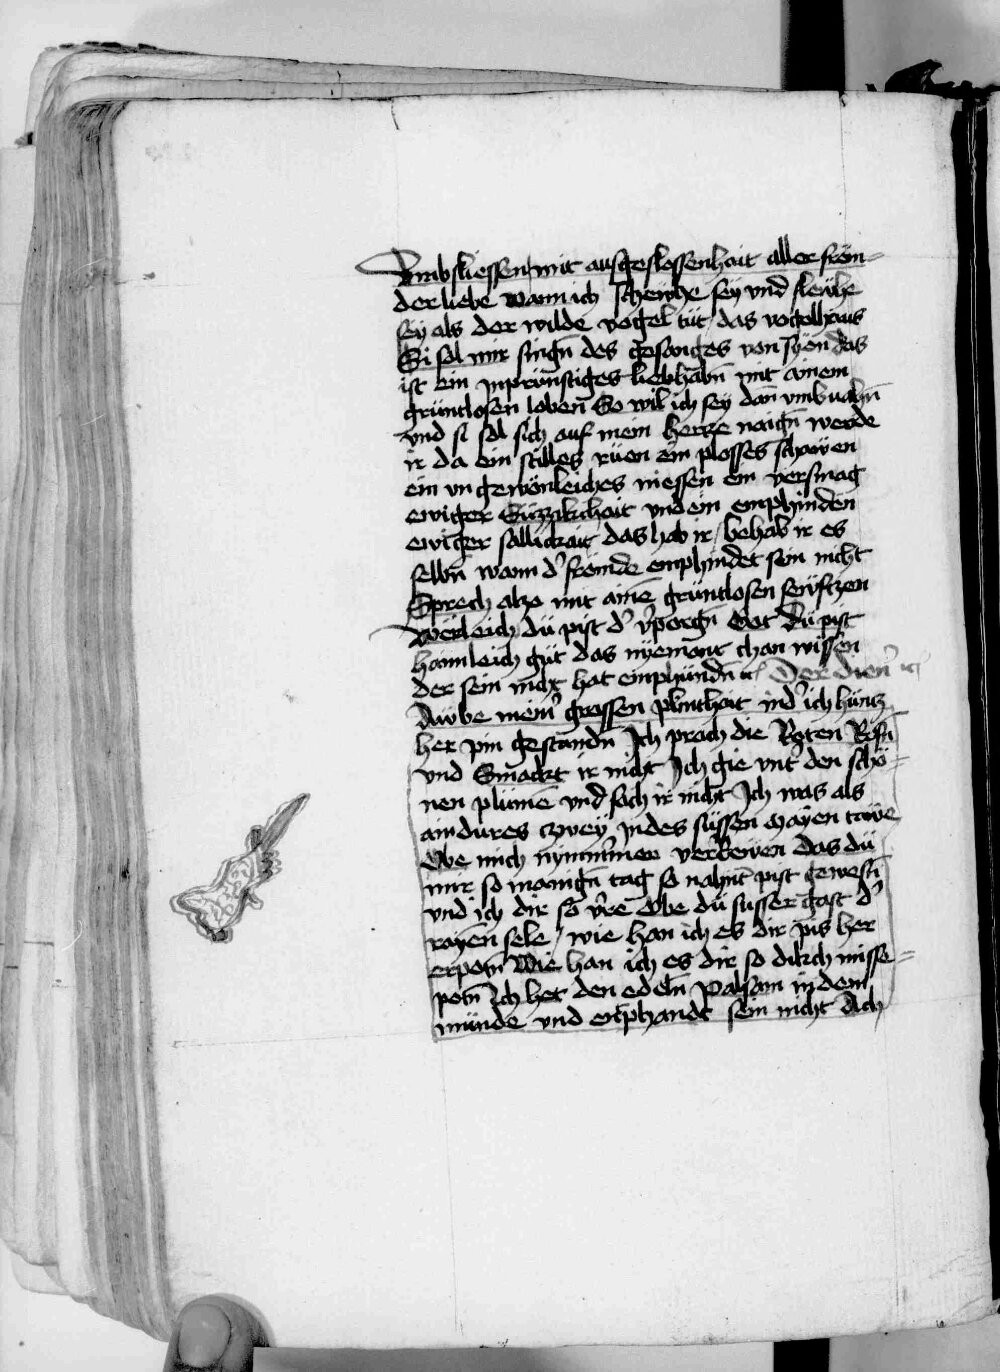 Vmbsliessen mit ausgeslossenhait aller fröm-
der liebe wann ich schewhe sey vnd flewhe
sey als der wilde vogel tüt das vogelhaus
Si sol mir singn̄ des gesanges von syon das
ist ein inprünstiges liebhabn̄ mit ainem
grüntlosen loben So wil ich sey dan vmbuahn̄
vnd si sol sich auf mein hercze naign̄ werde
ir da ein stilles rüen ein plosses schawen
ein vngewönleiches niessen ein versmag
ewiger Süzzikchait vnd ein emphinden
ewiger sällickait das hab ir behab ir es
selbn̄ wann d' frömde emphindet sein nicht
Sprech also mit aine grüntlosen seyftzen
Werleich dü pist d' v'porgn̄ Got Dü pist
haimleich güt das nyemant chan wissen
der sein nicht hat emphündn̄ ꝛc Der dien' ꝛc
Awbe mein' grossen plinthait in d' ich hüntz
her pin gestandn̄ Ich prach die Roten Rosn̄
vnd Smackt ir nicht Ich gie vnt' den schö-
nen plümē vnd sach ir nicht Ich was als
ain dures czwey in des süssen mayen tawe
Owe mich nymm'mer verrewen das dü
mir so manign̄ tag so nahnt pist gewesn̄
vnd ich dir so v're Owe dü susser gast d'
rayen sele wie han ich es dir pis her
erpotn̄ Wie han ich es dir so dikch misse-
potn̄ Ich het den edeln̄ Palsam in dem
münde vnd enphandt sein nicht Ach